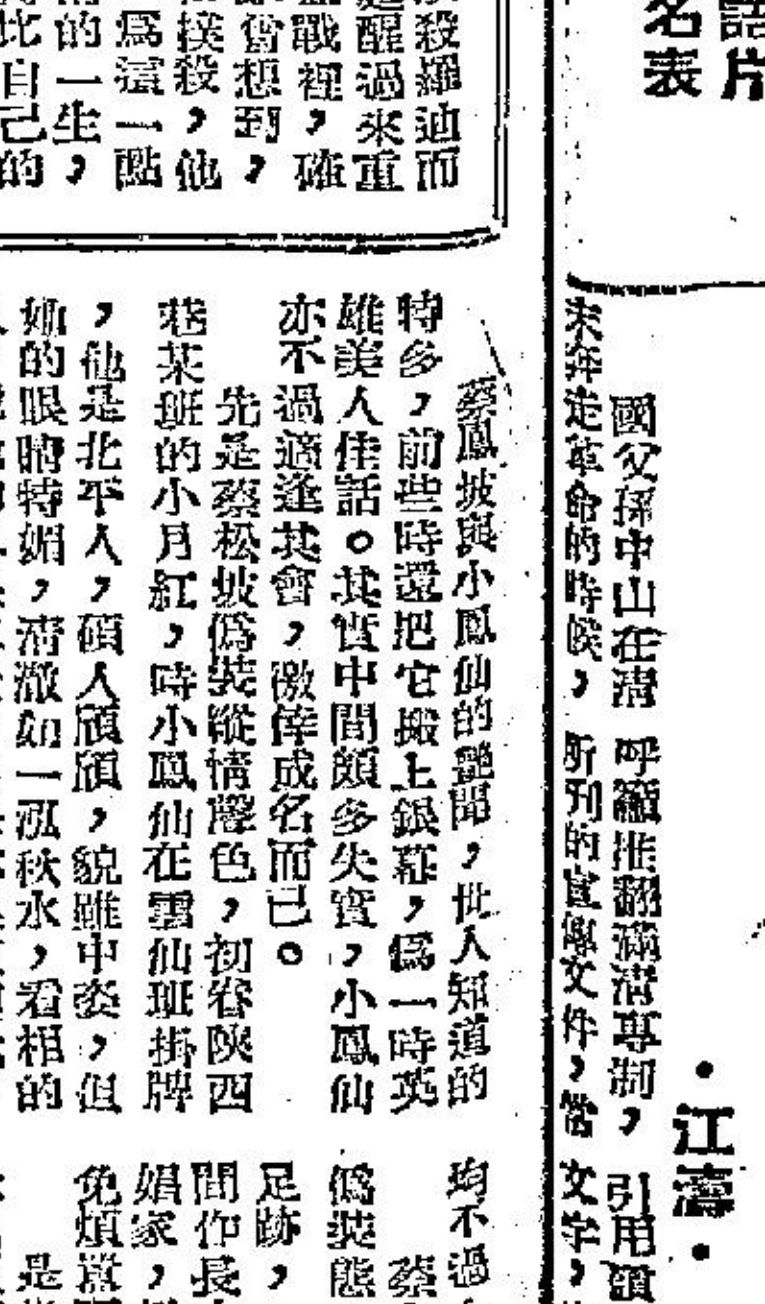 話片
名表
・江濤・
國父孫中山在清
末奔走革命的時候，
呼籲推翻滿清專制，
所刊的宣傳文件，當
引用
文字，
殺羅迪而
醒過來重
戰裡，確
會想到，
撲殺，他
爲這一點
的一生，
比自己的
蔡鳳坡與小鳳仙的艷聞，世人知道的
特多，前些時還把它搬上銀幕，爲一時英
雄美人佳話。其實中間頗多失實，小鳳仙
亦不過適逢其會，徼倖成名而已。
先是蔡松坡僞裝縱情聲色，初眷陝西
巷某班的小月紅，時小鳳仙在雲仙班掛牌
，他是北平人，碩人頎頎，貌雖中姿，但
她的眼睛特媚，清澈如一泓秋水，看相的
均不過
蔡
僞裝態
足跡，
間作長
娼家，
免煩
是